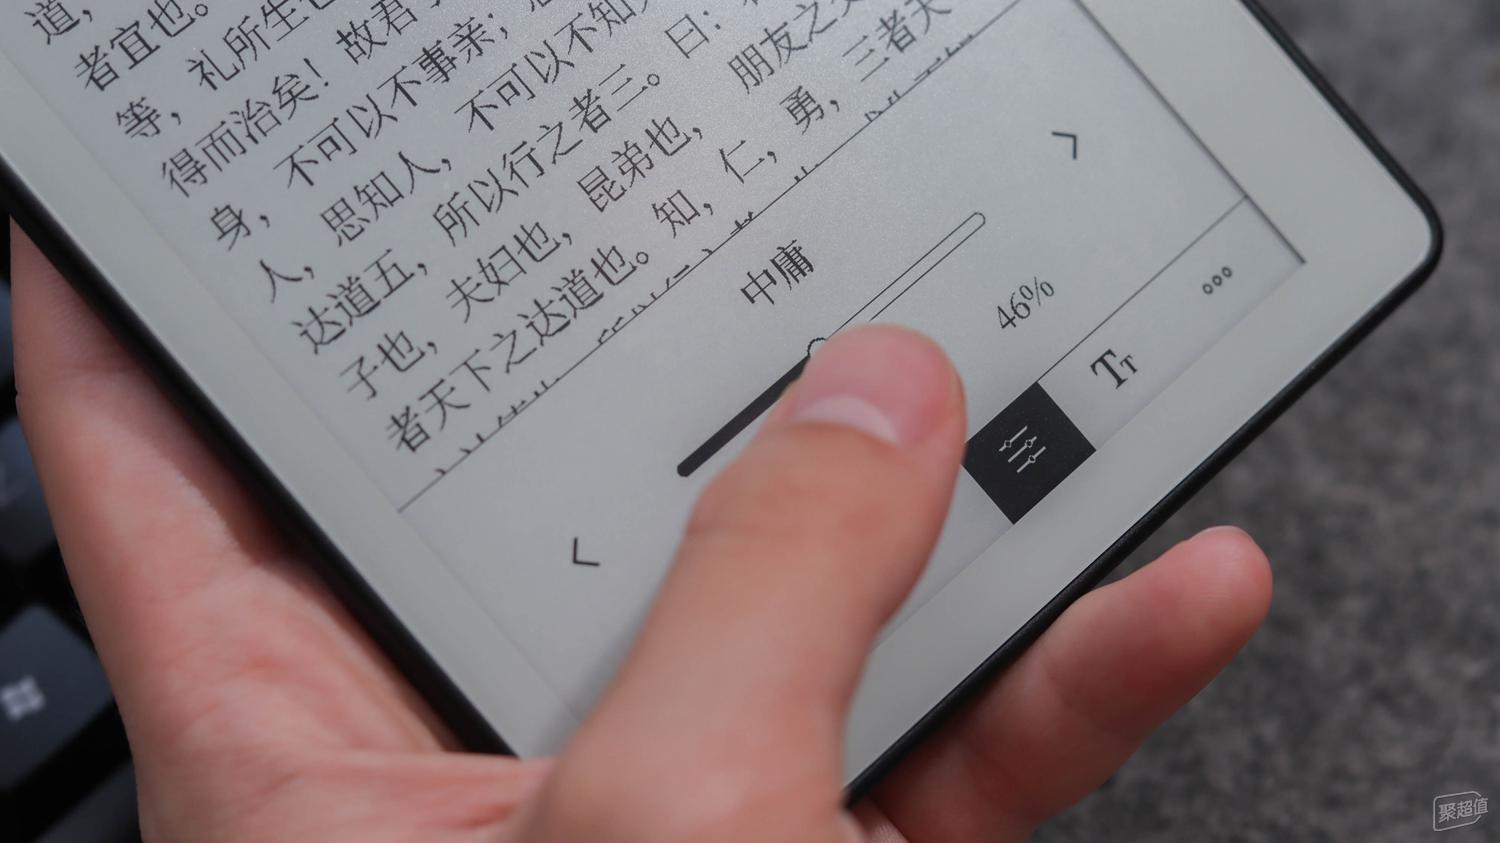 道，
者宜也。
等，礼所生也
得而治矣！故君子
身，不可以不事亲；思
人，思知人，不可以不知
达道五，所以行之者三。曰：
子也，夫妇也，昆弟也，朋友之交
者天下之达道也。知，仁，勇，三者天
中庸
46%
TT
聚超值